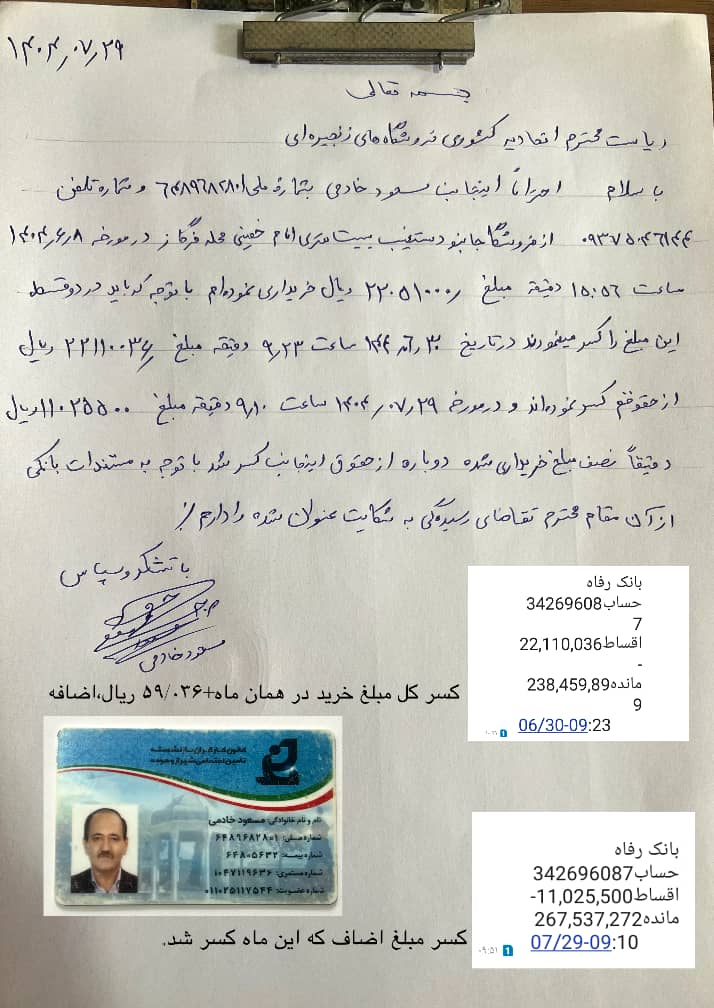 ۱۴۰۴٫۰۷٫۲۹
بسمه تعالی
ریاست محترم اتحادیه کشوری فروشگاه‌های زنجیره‌ای
با سلام احتراماً اینجانب مسعود خادمی بشماره ملی ۶۴۸۹۶۸۲۸۰۱ و شماره تلفن
از فروشگاه جانبو دستغیب بیست متری امام خمینی محله فرگاز در مورخه ۱۴۰۴٫۶٫۸
ساعت ۱۵:۵۶ دقیقه مبلغ ۲۲۰۵۱۰۰۰ ریال خریداری نموده‌ام با توجه که باید در دو قسط
این مبلغ را کسر مینمودند در تاریخ ساعت ۹٫۲۳ دقیقه مبلغ ۲۲۱۱۰۰۳۶ ریال
از حقوقم کسر نموده‌اند و در مورخه ۱۴۰۴٫۰۷٫۲۹ ساعت ۹٫۱۰ دقیقه مبلغ ۱۱۰۲۵۵۰۰ ریال
دقیقاً نصف مبلغ خریداری شده دوباره از حقوق اینجانب کسر شد با توجه به مستندات بانکی
از آن مقام محترم تقاضای رسیدگی به شکایت عنوان شده را دارم
با تشکر و سپاس
مسعود خادمی
بانک رفاه
حساب34269608
7
اقساط22,110,036
-
مانده238,459,89
9
06/30-09:23
کسر کل مبلغ خرید در همان ماه+۵۹/۰۳۶ ریال،اضافه
کانون کارگران بازنشسته
تامین اجتماعی شیراز و حومه
نام و نام خانوادگی: مسعود خادمی
شماره ملی: ۶۴۸۹۶۸۲۸۰۱
شماره بیمه: ۶۴۸۰۵۶۳۲
شماره مستمری: ۱۰۴۷۱۱۹۶۳۶
شماره عضویت: ۰۱۱۰۲۵۱۱۷۵۴۴
بانک رفاه
حساب342696087
اقساط11,025,500-
مانده267,537,272
07/29-09:10
۰۹:۵۱ 1
کسر مبلغ اضاف که این ماه کسر شد.